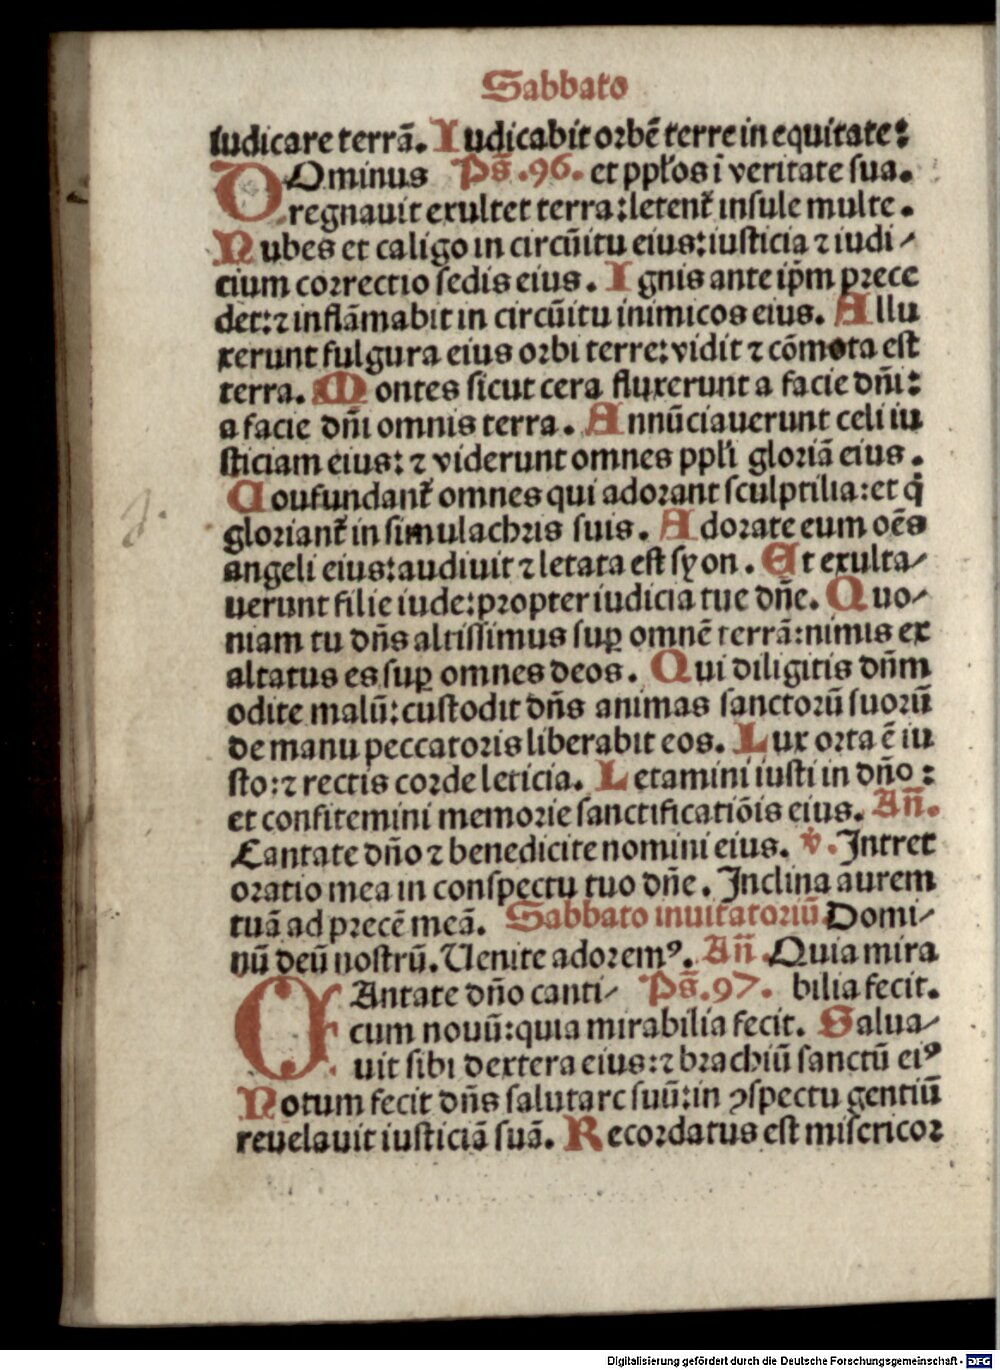 Sabbato
iudicare terrā. Iudicabit orbē terre in equitate:
DOminus Ps̄ .96. et ppłos ī veritate sua.
regnauit exultet terra: letent᷑ insule multe.
Nubes et caligo in circūitu eius: iusticia ⁊ iudi⸗
cium correctio sedis eius. Ignis ante ip̄m prece
det: ⁊ inflāmabit in circūitu inimicos eius. Allu
xerunt fulgura eius orbi terre: vidit ⁊ cōmota est
terra. Montes sicut cera fluxerunt a facie dn̄i:
a facie dn̄i omnis terra. Annūciauerunt celi iu
sticiam eius: ⁊ viderunt omnes ppłi gloriā eius.
Coufundant᷑ omnes qui adorant sculptilia: et q̄
gloriant᷑ in simulachris suis. Adorate eum oēs
angeli eius: audiuit ⁊ letata est syon. Et exulta⸗
uerunt filie iude: propter iudicia tue dn̄e. Quo⸗
niam tu dn̄s altissimus suꝑ omnē terrā: nimis ex
altatus es suꝑ omnes deos. Qui diligitis dn̄m
odite malū: custodit dn̄s animas sanctorū suorū
de manu peccatoris liberabit eos. Lux orta ē iu
sto: ⁊ rectis corde leticia. Letamini iusti in dn̄o:
et confitemini memorie sanctificatiōis eius. An̄.
Cantate dn̄o ⁊ benedicite nomini eius. ℣. Intret
oratio mea in conspectu tuo dn̄e. Inclina aurem
tuā ad precē meā. Sabbato inuitatoriū Domi⸗
nū deū nostrū. Uenite adoremꝰ. An̄. Quia mira
CAntate dn̄o canti⸗ Ps̄.97. bilia fecit.
cum nouū: quia mirabilia fecit. Salua⸗
uit sibi dextera eius: ⁊ brachiū sanctū eiꝰ
Notum fecit dn̄s salutare suū: in ꝯspectu gentiū
reuelauit iusticiā suā. Recordatus est misericor
Digitalisierung gefördert durch die Deutsche Forschungsgemeinschaft - DFG